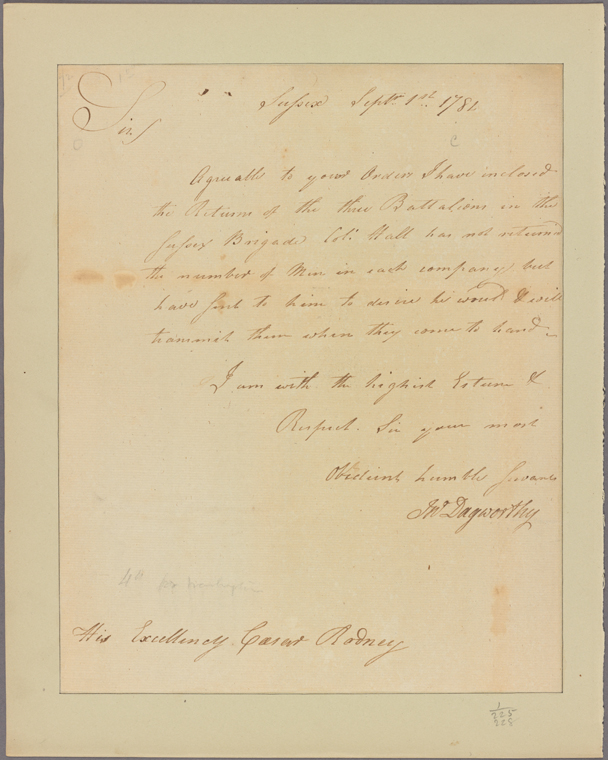 Sussex Septr. 1st. 1781
Sir,
Agreeable to your Orders I have inclosed
the Returns of the three Battalions in the
Sussex Brigade Col. Hall has not return'd
the number of Men in each company but
have sent to him to desire he would & will
transmit them when they come to hand
I am with the highest Esteem &
Respect. Sir your most
Obedient humble Servant
Jno. Dagworthy
4th
His Excellency Cæsar Rodney
1
225